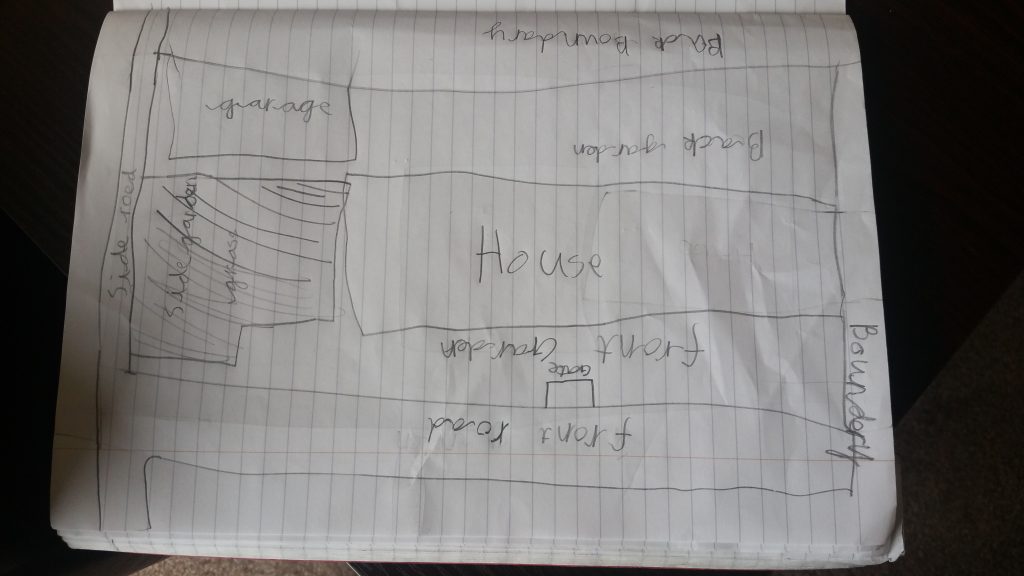 Back Boundary
garage
Back garden
Side road
Side garden
House
front Garden
Gate
front road
Boundary